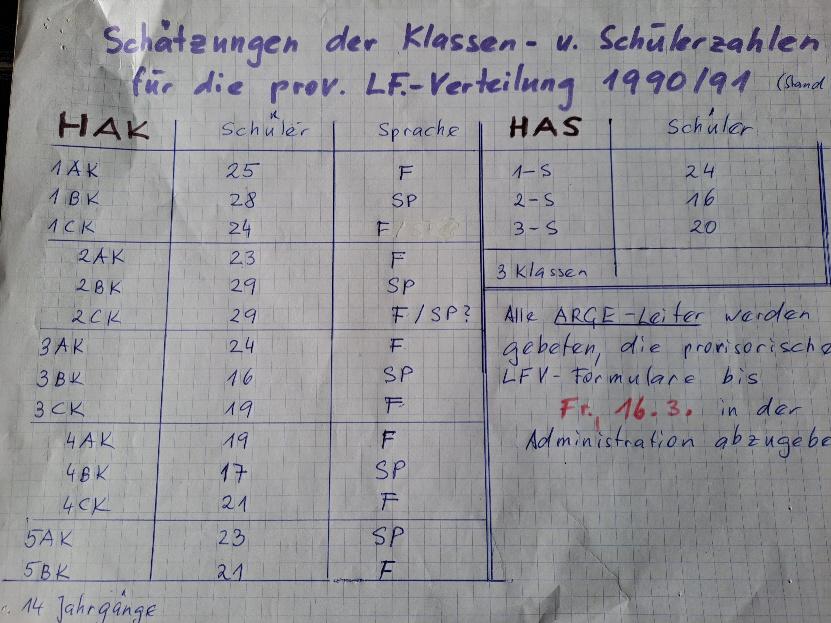 Schätzungen der Klassen- u. Schülerzahlen
für die prov. LF.-Verteilung 1990/91 (Stand
HAK Schüler Sprache
1AK 25 F
1BK 28 SP
1CK 24 F
2AK 23 F
2BK 29 SP
2CK 29 F/SP?
3AK 24 F
3BK 16 SP
3CK 19 F
4AK 19 F
4BK 17 SP
4CK 21 F
5AK 23 SP
5BK 21 F
14 Jahrgänge
HAS Schüler
1-S 24
2-S 16
3-S 20
3 Klassen
Alle ARGE-Leiter werden
gebeten, die provisorische
LFV-Formulare bis
Fr, 16.3. in der
Administration abzugebe